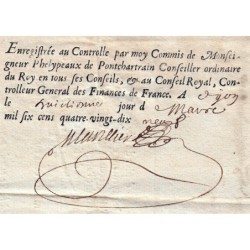 Enregistrée au Controlle par moy Commis de Monsei-
gneur Phelypeaux de Pontchartrain Conseiller ordinaire
du Roy en tous ses Conseils, & au Conseil Royal, Con-
trolleur General des Finances de France. A Dijon
le huictiesme jour d Mars
mil six cens quatre-vingt-dix neuf